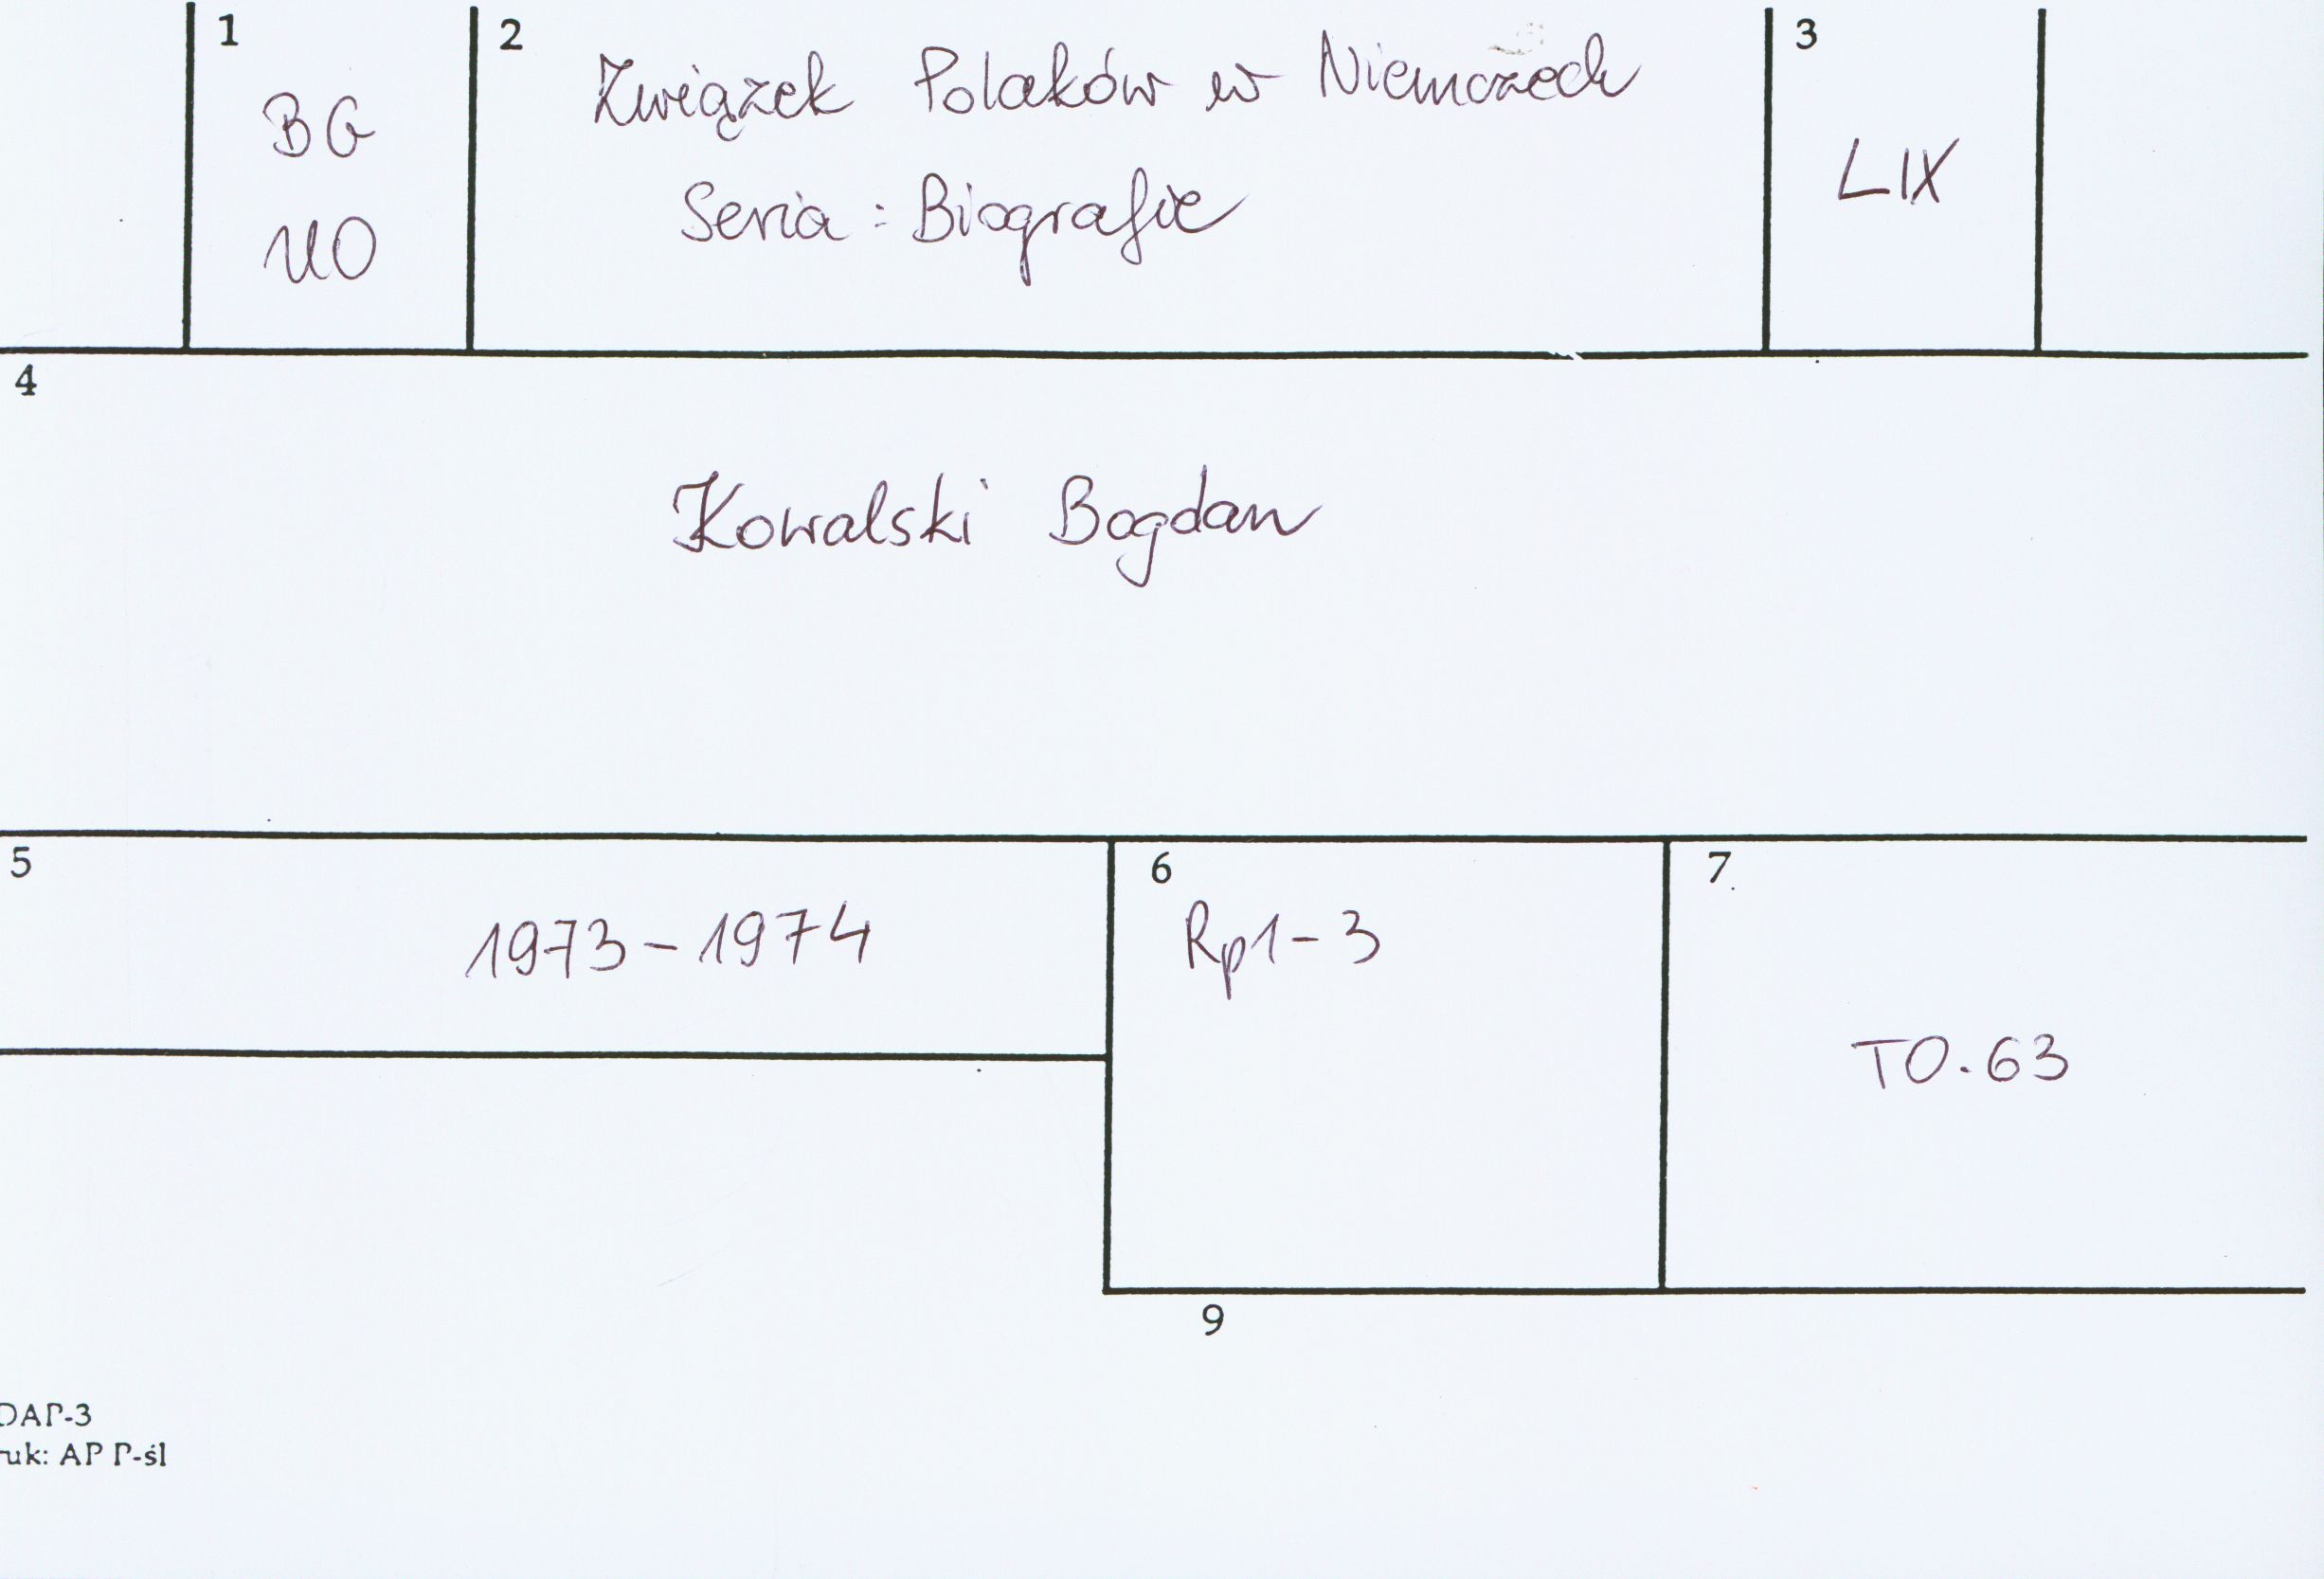 1
BG
UO
2
Związek Polaków w Niemczech
Seria: Biografie
3
LIX
4
Kowalski Bogdan
5
1973-1974
6
Rp1-3
7
TO.63
9
DAP-3
ruk: AP P-śl